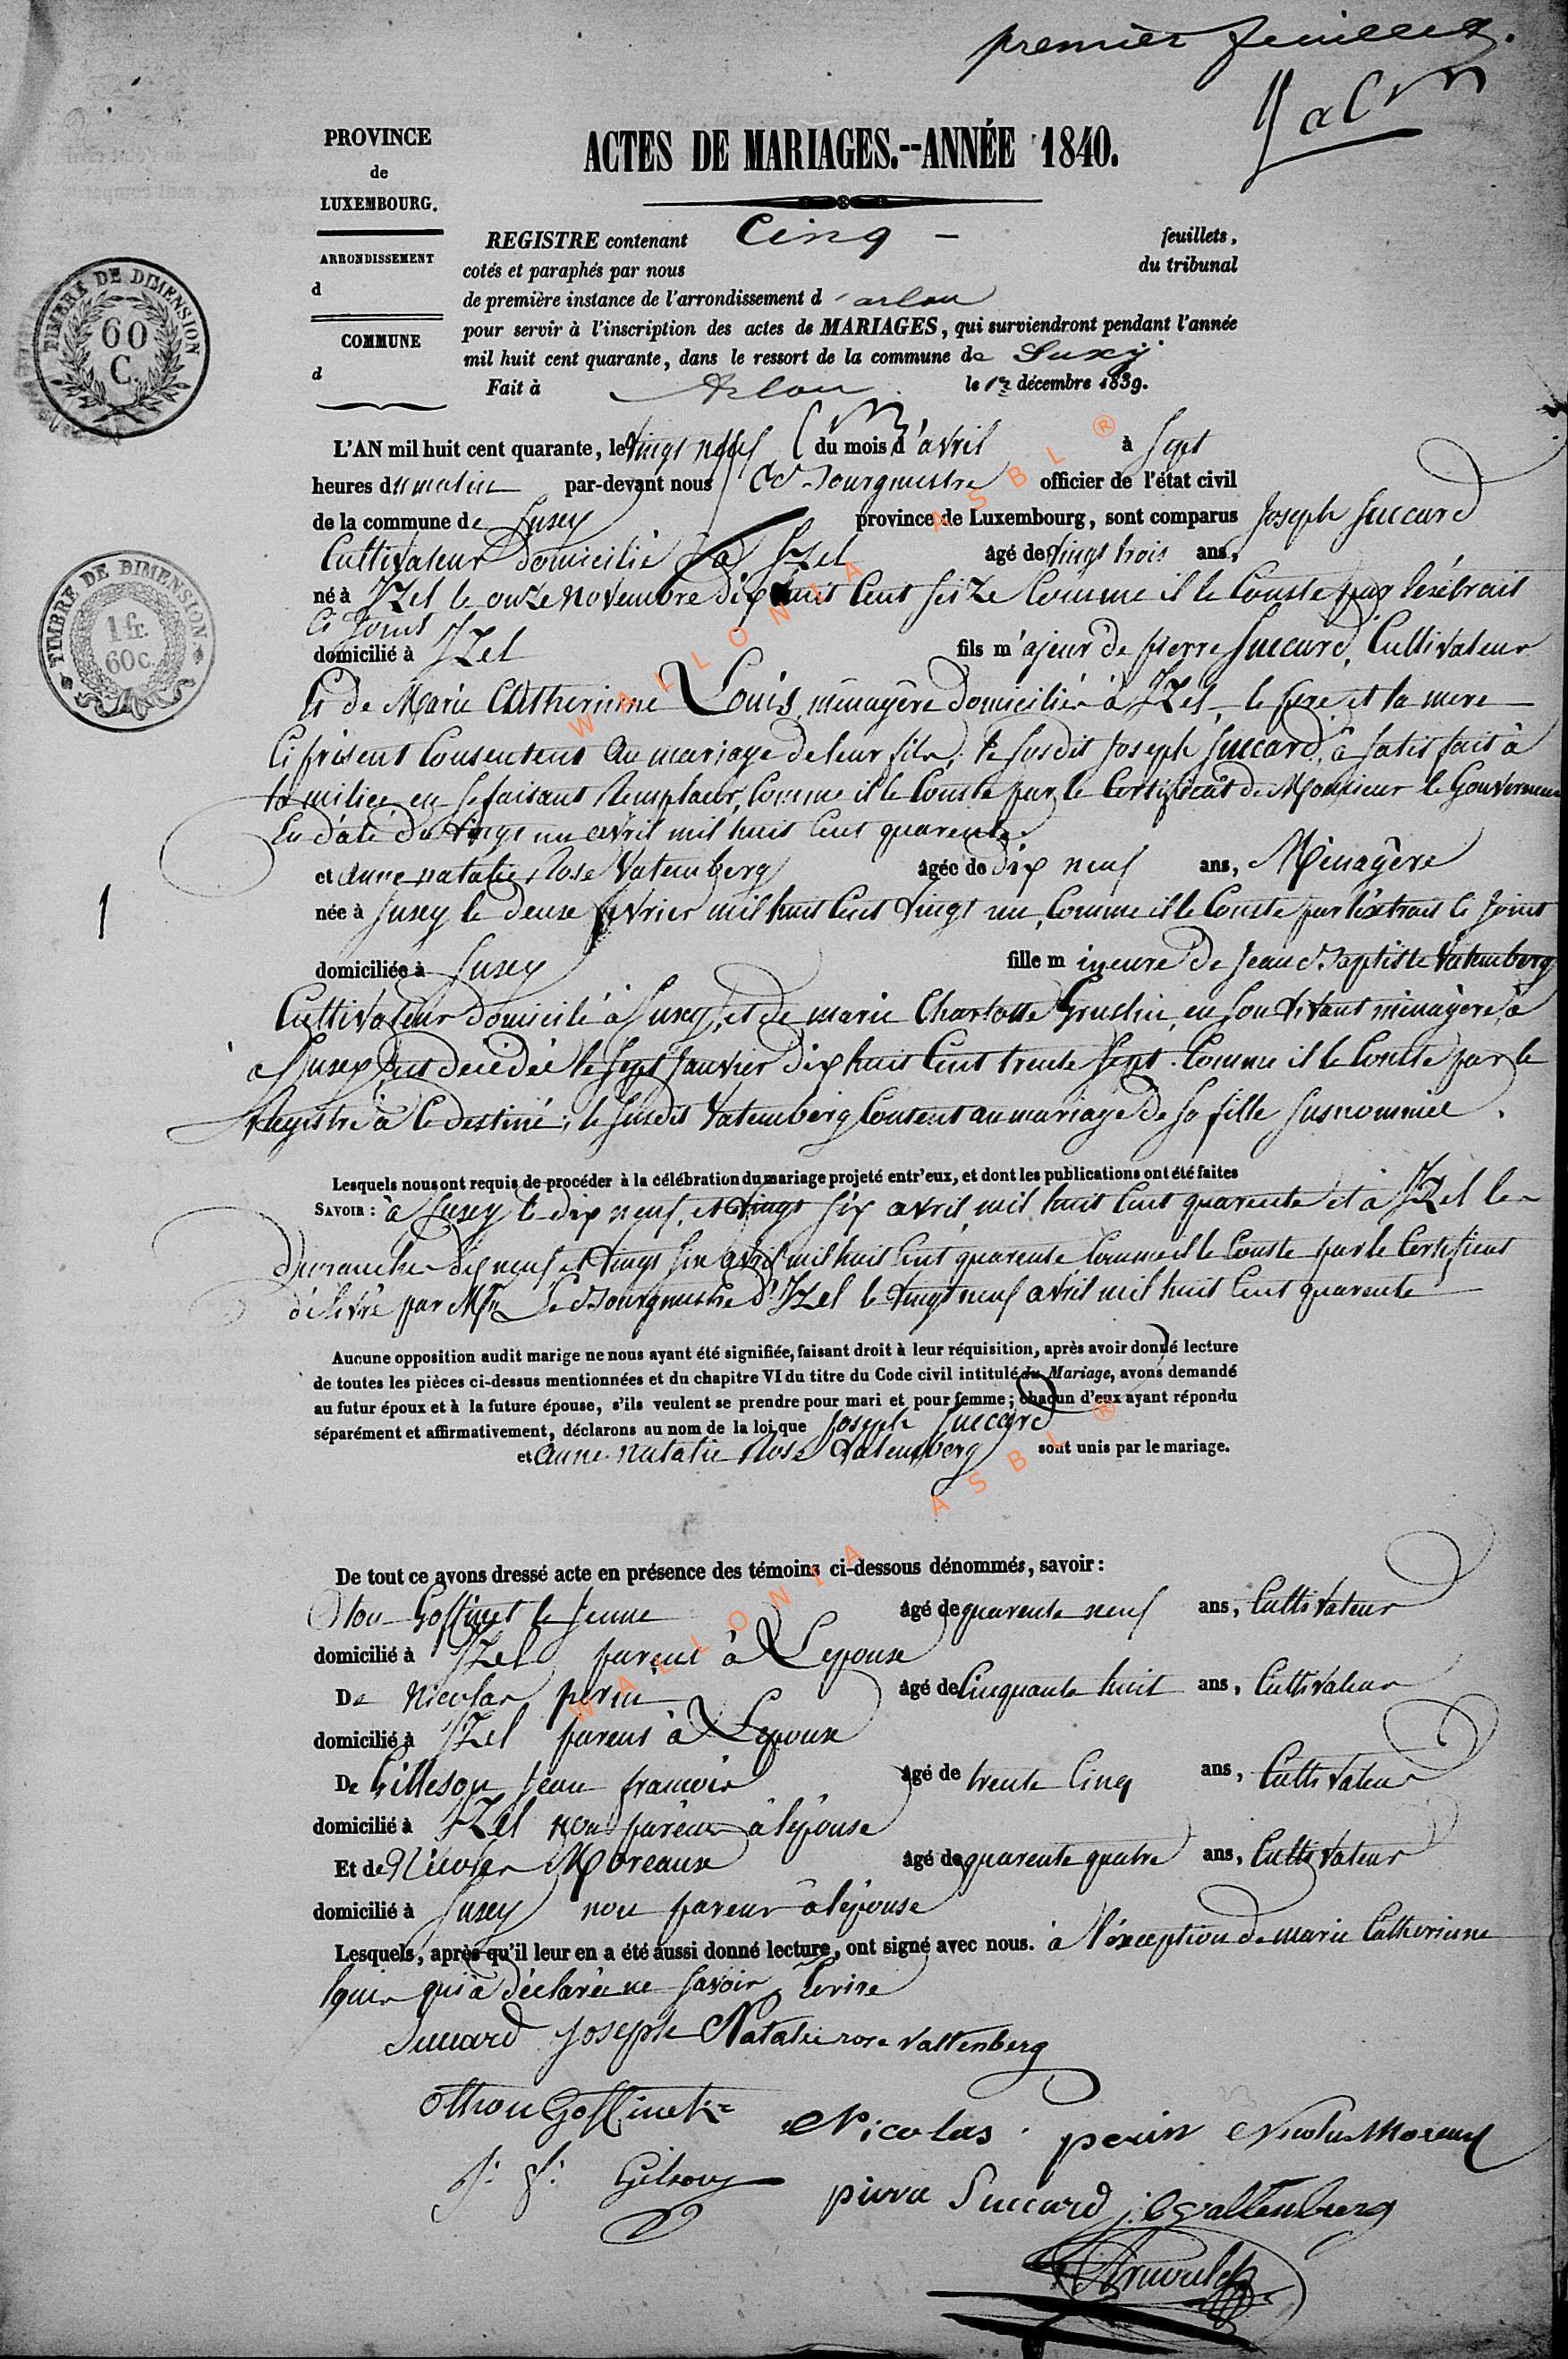 premier feuillet.
PROVINCE
de
LUXEMBOURG.
ARRONDISSEMENT
d
COMMUNE
d
ACTES DE MARIAGES.--ANNÉE 1840.
REGISTRE contenant Cinq - feuillets,
cotés et paraphés par nous du tribunal
de première instance de l'arrondissement d'arlon
pour servir à l'inscription des actes de MARIAGES, qui surviendront pendant l'année
mil huit cent quarante, dans le ressort de la commune de Suxy
Fait à Arlon le décembre 1839.
TIMBRE DE DIMENSION
60
C.
TIMBRE DE DIMENSION
1 fr.
60 c.
L'AN mil huit cent quarante, le vingt neuf du mois d'avril à Sept
heures du matin par-devant nous Bourgmestre officier de l'état civil
de la commune de Suxy province de Luxembourg, sont comparus Joseph Succard
Cultivateur domicilié à Izel âgé de vingt trois ans,
né à Izel le onze novembre dix huit Cent Seize Comme il le Conste par l'extrait
Ci Joint
domicilié à Izel fils majeur de pierre Succard, Cultivateur
et de Marie Catherinne Louis, ménagère domiciliés à Izel, le pere et la mere
Ci présent Consentent au mariage de leur fils; le Susdit Joseph Succard, à satisfait à
la milice en se faisant Remplacer, Comme il le Conste par le Certificat de Monsieur le Gouverneur
En date du vingt un avril mil huit Cent quarente
et anne natalie Rose Vatemberg âgée de dix neuf ans, Ménagère
1
née à Susey le deuse février mil huit Cent vingt un, Comme il le Conste par l'extrait Ci Joint
domiciliée à Susey fille mineure de Jean Baptiste Vatemberg
Cultivateur domicilé à Susey, et de marie Charlotte en Son vivant ménagère, à
à Susey décédée le Sept Janvier dix huit Cent trente Sept. Comme il le Conste par le
Registre à Ce destiné; le Susdit Vatemberg Consent au mariage de Sa fille Susnommée.
Lesquels nous ont requis de procéder à la célébration du mariage projeté entr'eux, et dont les publications ont été faites
SAVOIR : à Susey le dix neuf, et vingt Six avril, mil huit Cent quarente et à Izel les
Dimanches dix neuf et vingt Six avril mil huit Cent quarente Comme il le Conste par le Certificat
délivré par Mr Le Bourgmestre d'Izel le vingt neuf avril mil huit Cent quarente
Aucune opposition audit marige ne nous ayant été signifiée, faisant droit à leur réquisition, après avoir donné lecture
de toutes les pièces ci-dessus mentionnées et du chapitre VI du titre du Code civil intitulé du Mariage, avons demandé
au futur époux et à la future épouse, s'ils veulent se prendre pour mari et pour femme; chacun d'eux ayant répondu
séparément et affirmativement, déclarons au nom de la loi que Joseph Succard
et anne natalie Rose Vatemberg sont unis par le mariage.
De tout ce avons dressé acte en présence des témoins ci-dessous dénommés, savoir :
Goffinet le Jeune âgé de quarente neuf ans, Cultivateur
domicilié à Izel parent à Lepouse
De Nicolas perin âgé de Cinquante huit ans, Cultivateur
domicilié à Izel parent à Lepouse
De Gilleson Jean francois âgé de trente Cinq ans, Cultivateur
domicilié à Izel non parent à l'épouse
Et de Nicolas Moreaux âgé de quarente quatre ans, Cultivateur
domicilié à Susey non parent à l'épouse
Lesquels, après qu'il leur en a été aussi donné lecture, ont signé avec nous. à l'éxception de marie Catherinne
Louis qui à déclarée ne Savoir Ecrire
Succard Joseph Natalie rose Vattenberg
Othon Goffinet Nicolas perin Nicolas Moreaux
J. f. Gilson pierre Succard j. b Vattenberg
WALLONIA ASBL ®
WALLONIA ASBL ®